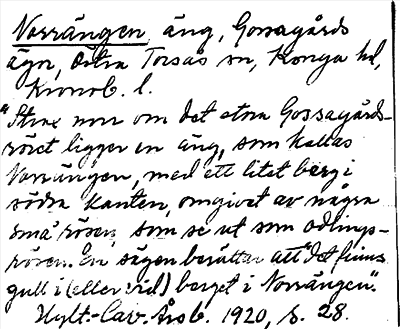 Norrängen, äng, Gossagårds
ägor, Östra Torsås sn, Konga hd,
Kronob. l.
"Strax norr om det stora Gossagårds-
röset ligger en äng, som kallas
Norrängen, med ett litet berg i
södra kanten, omgivet av några
små rösen, som se ut som odlings-
rösen. En sägen berättar att det finns
gull i (eller vid) berget i Norrängen".
Hylt.-Cav. Årsb. 1920, s. 28.